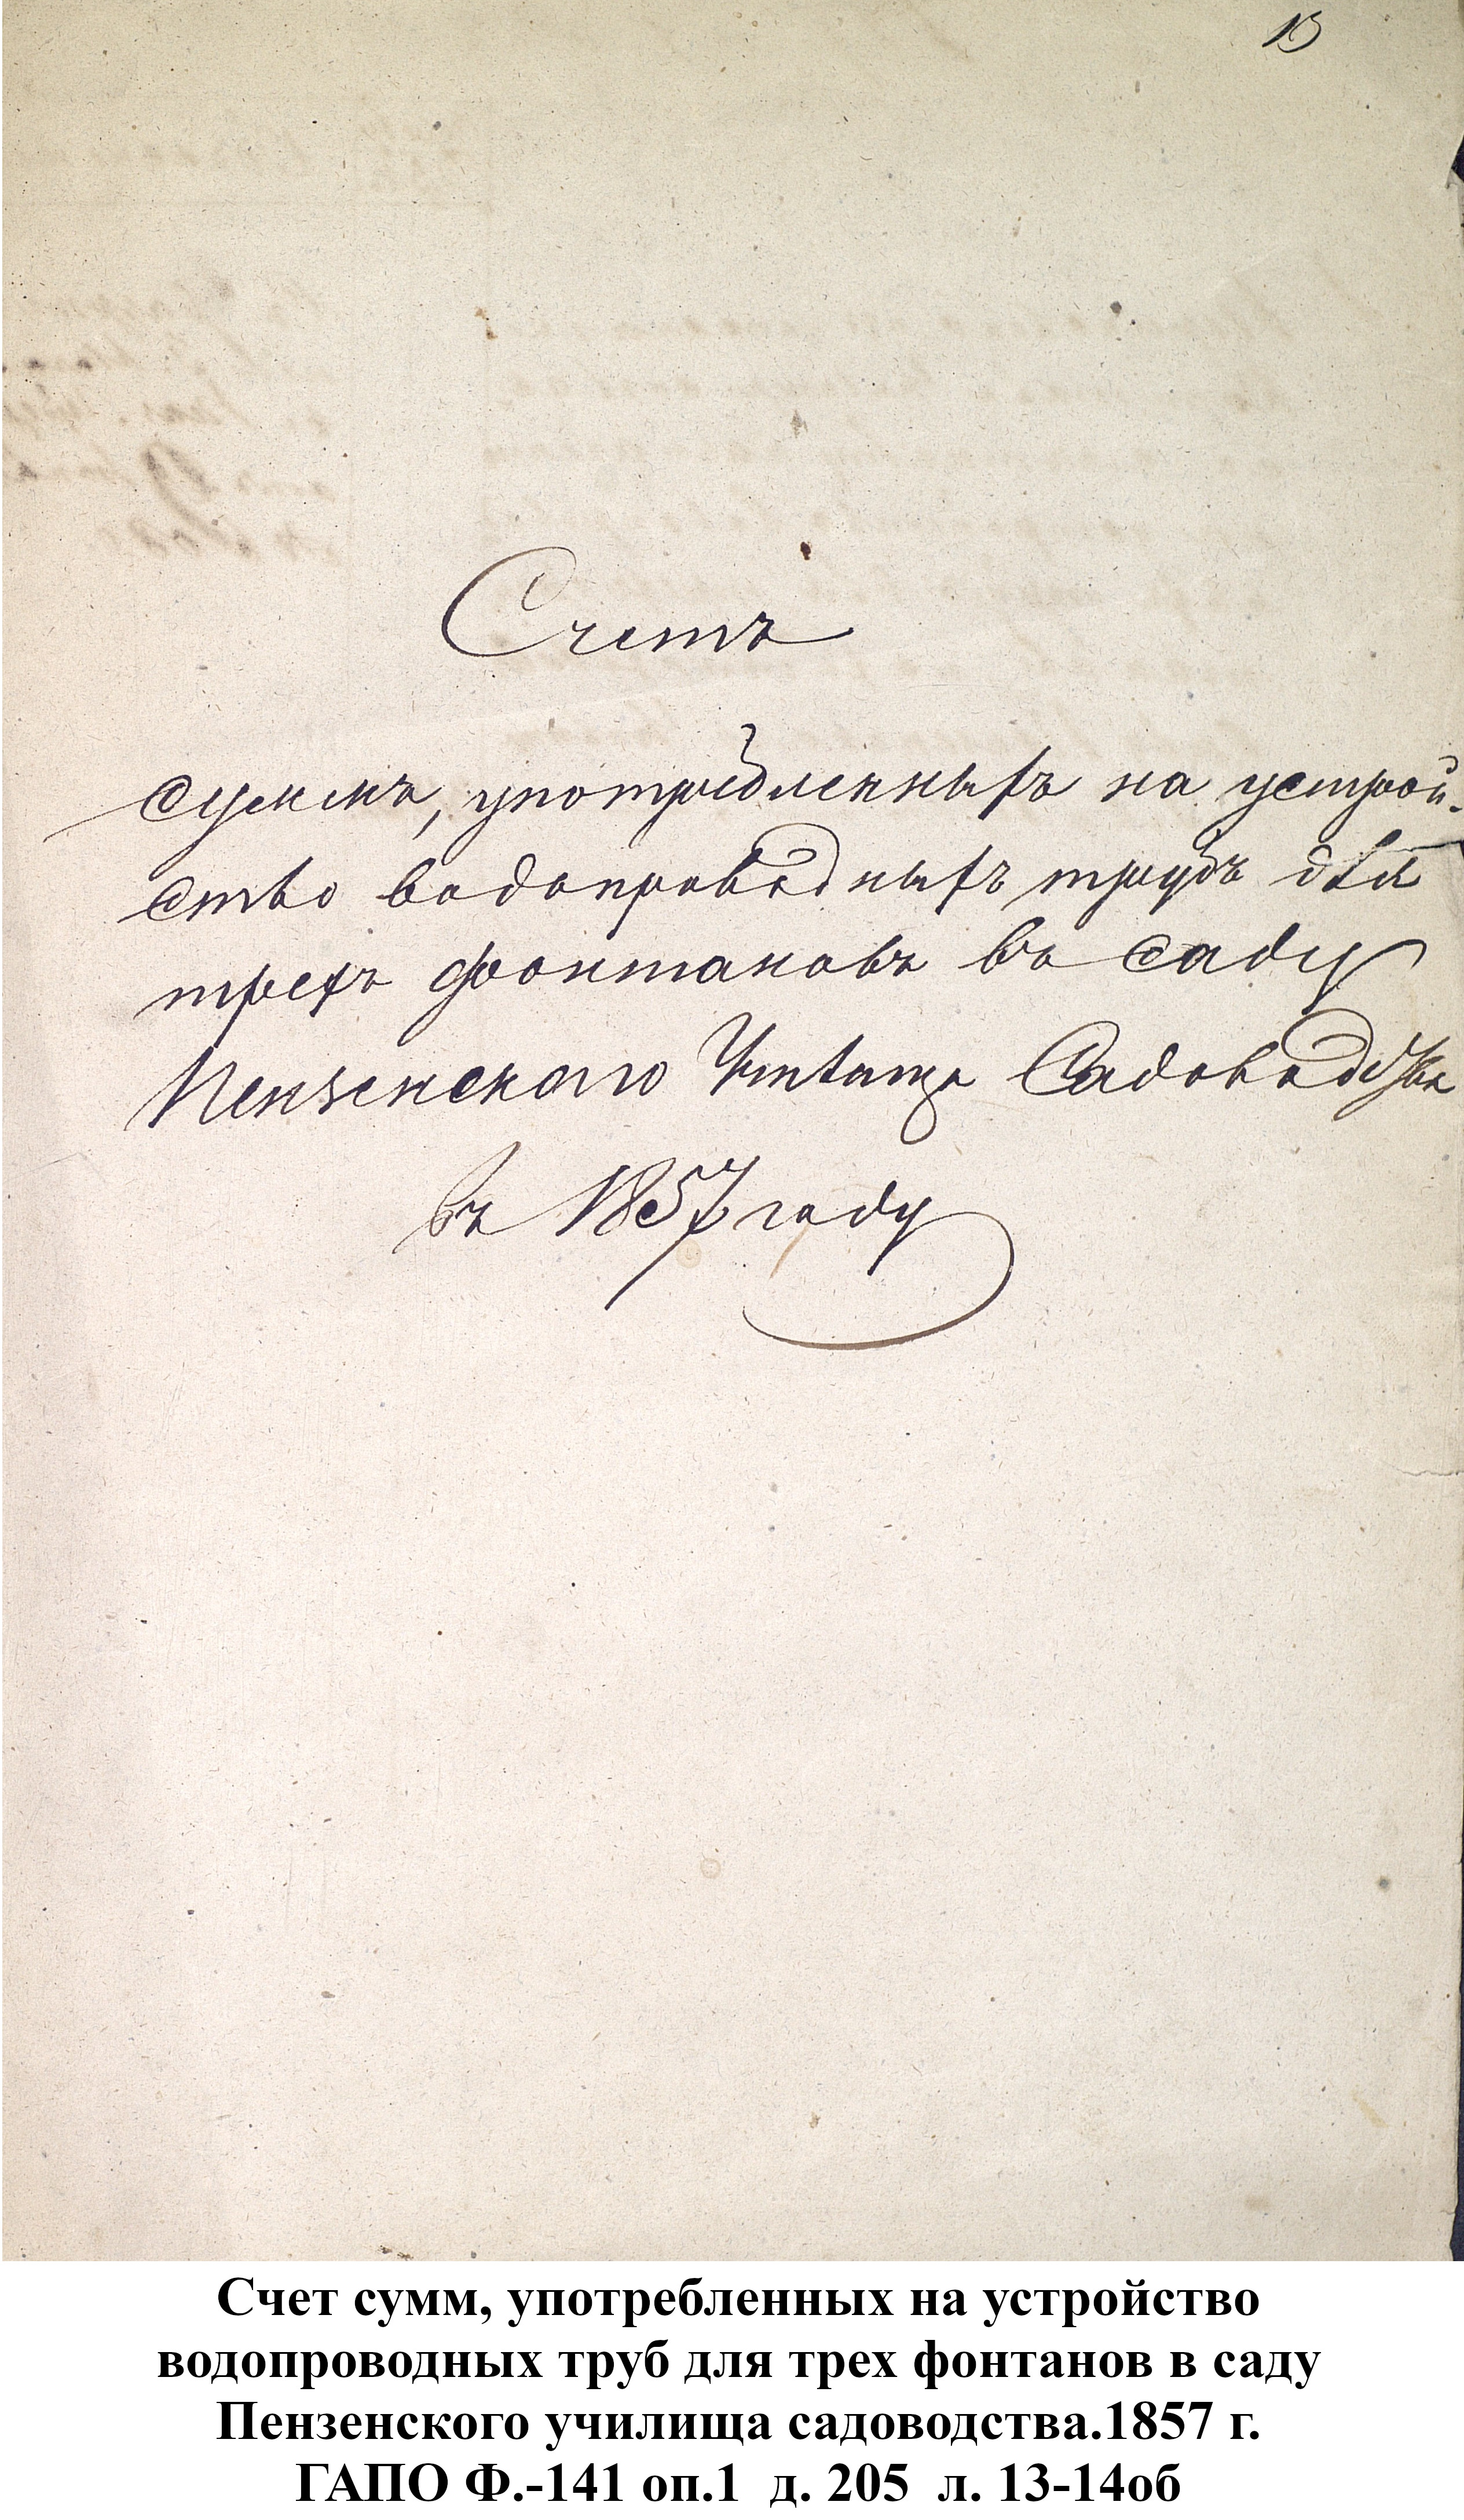 13
Счетъ
суммъ, употребленныхъ на устрой-
ство водопроводныхъ трубъ для
трехъ фонтановъ въ саду
Пензенского Училища Садоводства
въ 1857 году
Счет сумм, употребленных на устройство
водопроводных труб для трех фонтанов в саду
Пензенского училища садоводства.1857 г.
ГАПО Ф.-141 оп.1 д. 205 л. 13-14об